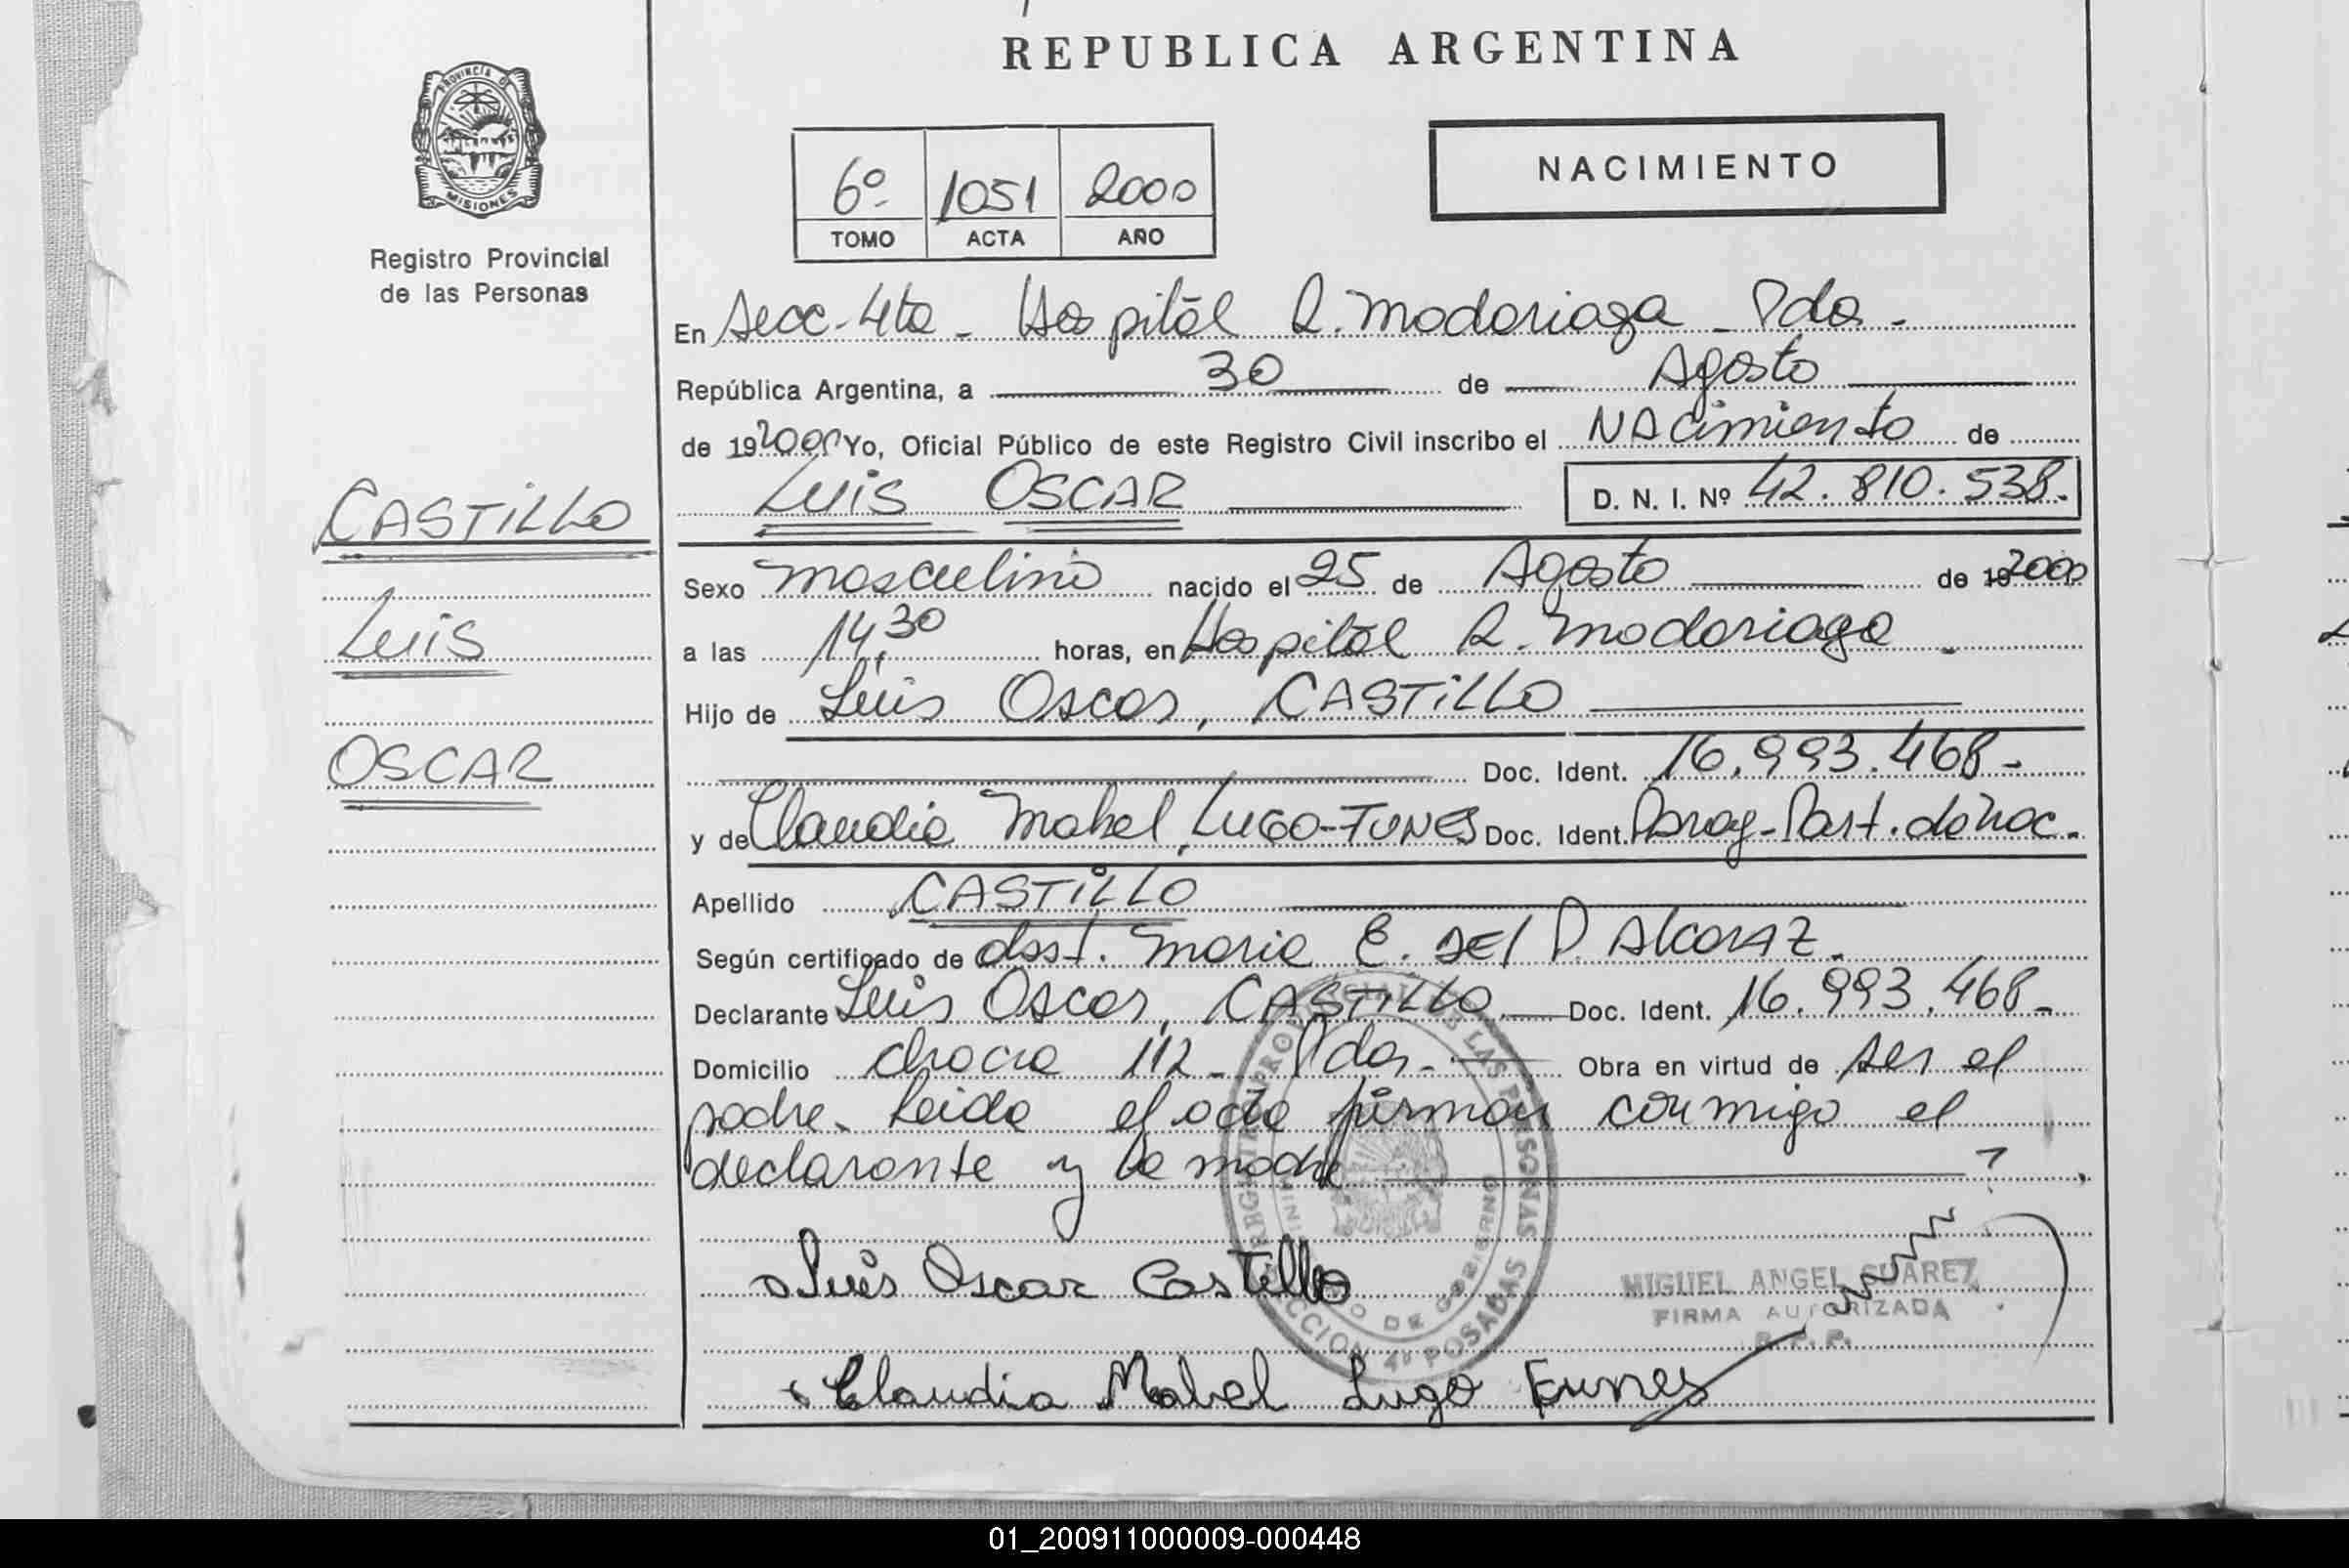 REPUBLICA ARGENTINA
PROVINCIA DE MISIONES
Registro Provincial
de las Personas
NACIMIENTO
6º 1051 2000
TOMO ACTA AÑO
En Secc. 4ta - Hospital R. Madariaga - Pdas.
República Argentina, a 30 de Agosto
de 19 2000 Yo, Oficial Público de este Registro Civil inscribo el NACimiento de
LUIS OSCAR D. N. I. Nº 42.810.538.
CASTiLLO
Luis
OSCAR
Sexo masculino nacido el 25 de Agosto de 19 2000
a las 14,30 horas, en Hospital R. Madariaga.
Hijo de Luis Oscar, CASTiLLO
Doc. Ident. 16.993.468-
y de Claudia Mabel, LUGO-FUNES Doc. Ident. Parag-Part. de nac.
Apellido CASTiLLO
Según certificado de María E. del P. Alcaraz.
Declarante Luis Oscar, CASTILLO Doc. Ident. 16.993.468-
Domicilio 112 - Pdas. Obra en virtud de ser el
padre. Leída el acta firman conmigo el
declarante y la madre
REGISTRO PROVINCIAL DE LAS PERSONAS
MINISTERIO DE GOBIERNO
SECCION 4º POSADAS
Luis Oscar Castillo
MIGUEL ANGEL SUAREZ
FIRMA AUTORIZADA
R. P. P.
Claudia Mabel Lugo Funes
01_200911000009-000448